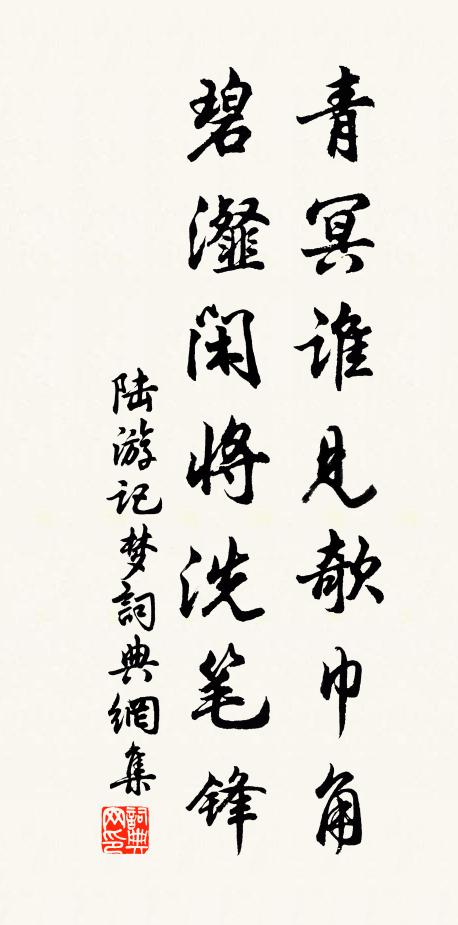 青冥谁见欹巾角
碧灩闲将洗笔锋
陆游记梦詞典網集
詞典网印